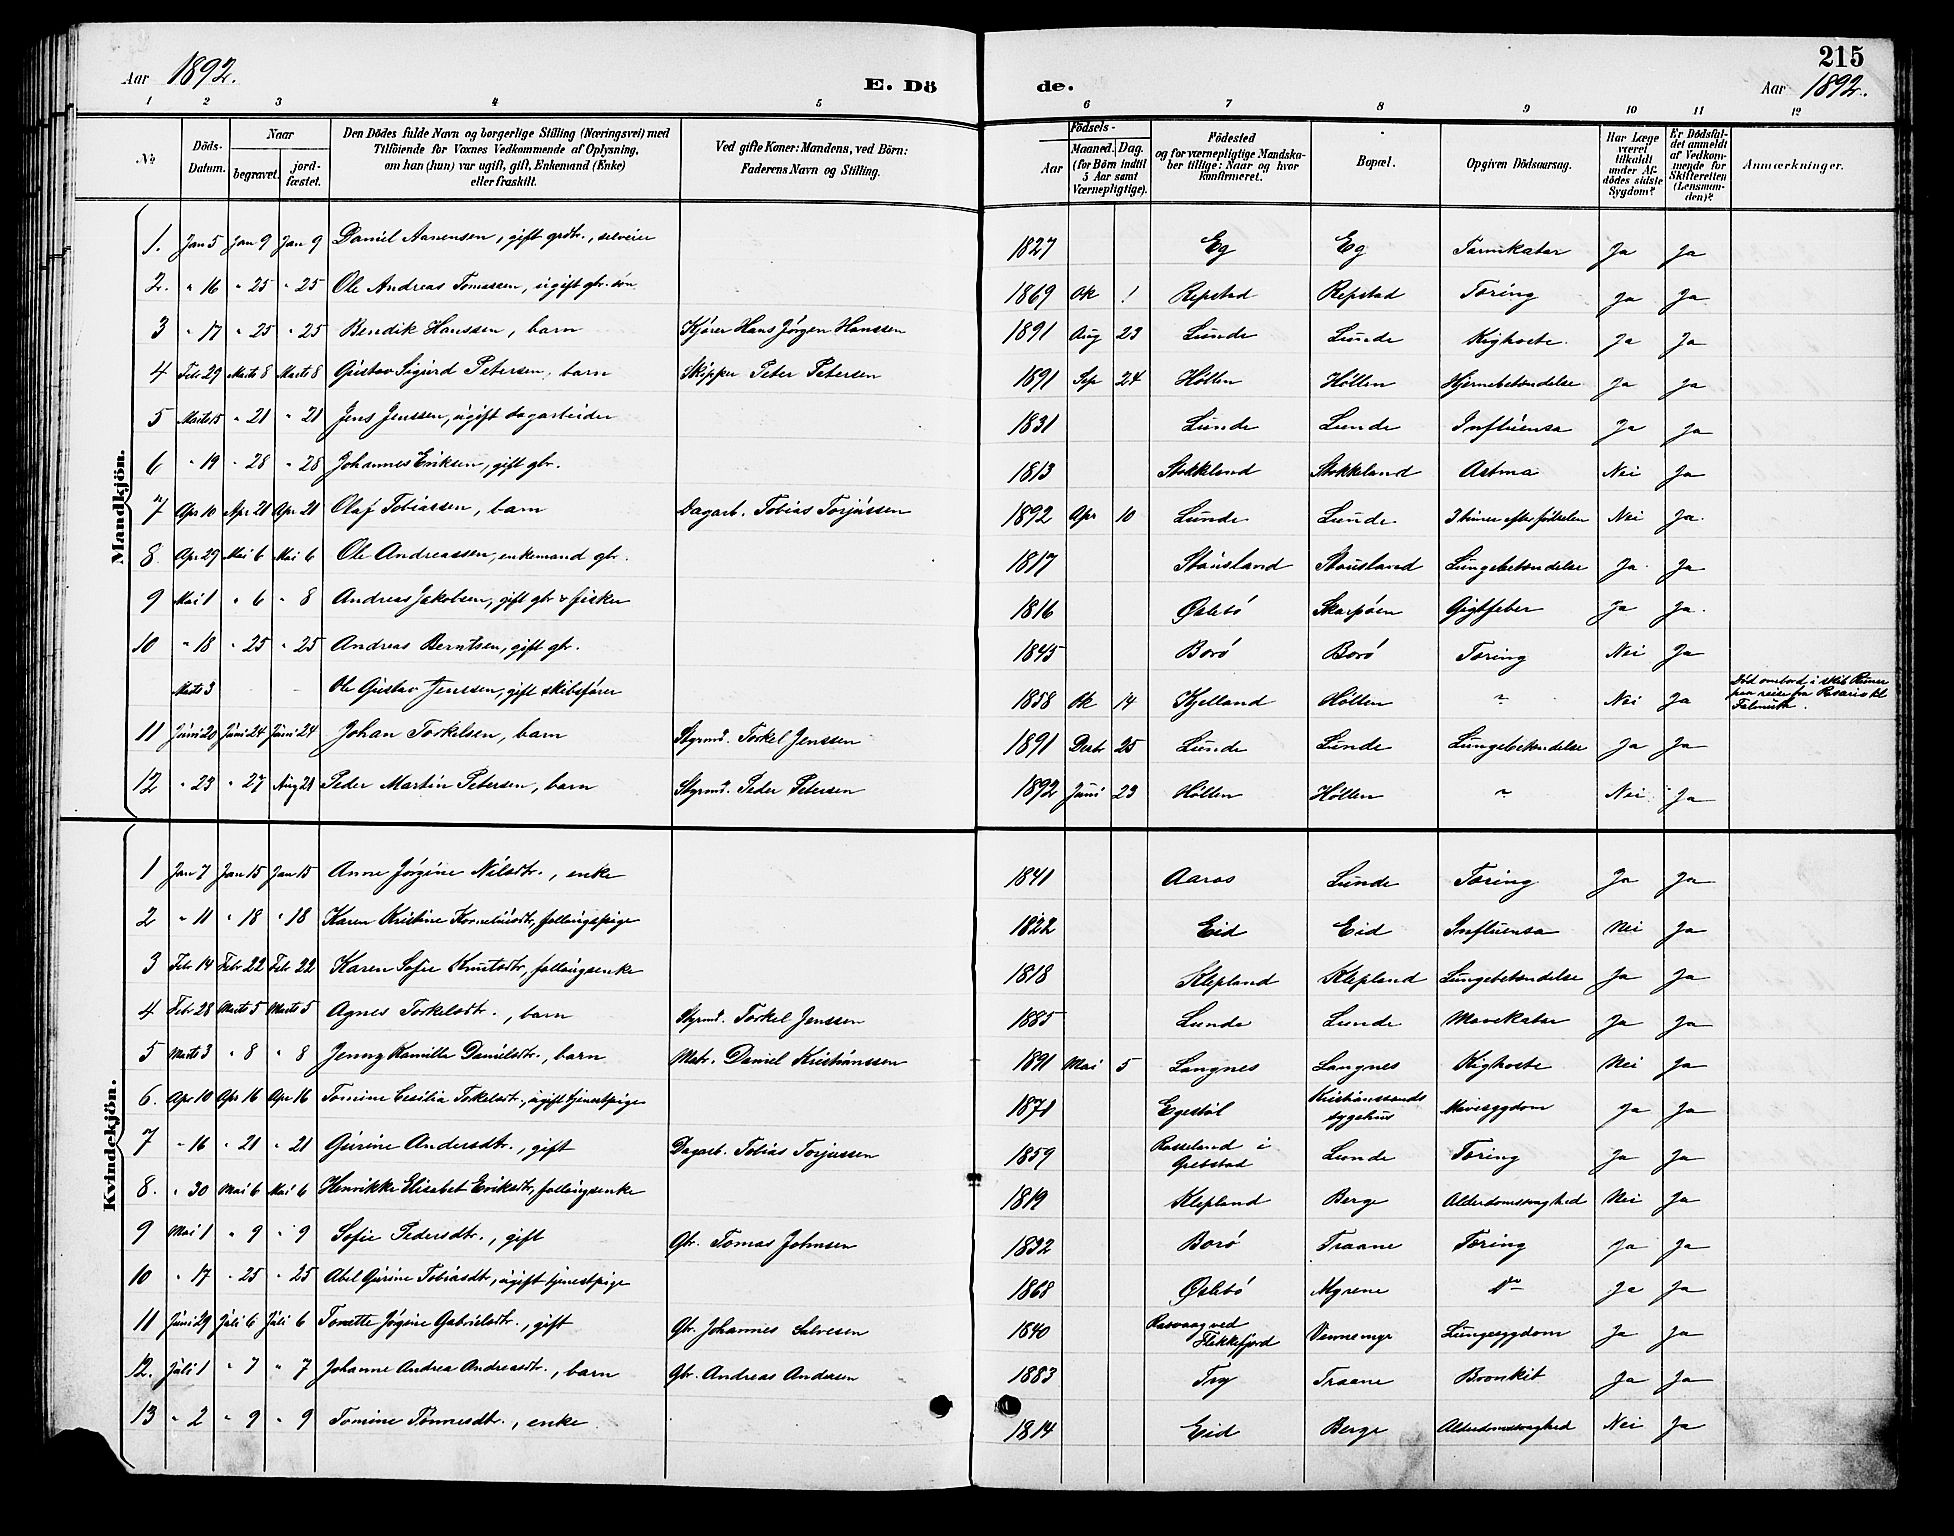 215
Aar 1892. E. Dö de. Aar 1892.
1 2 3 4 5 6 7 8 9 10 11 12
No
Döds-Datum.
Naar begravet. jordfæstet.
Den Dödes fulde Navn og borgerlige Stilling (Næringsvei) med
Tilföiende for Voxnes Vedkommende af Oplysning,
om han (hun) var ugift, gift, Enkemand (Enke)
eller fraskilt.
Ved gifte Koner: Mandens, ved Börn:
Faderens Navn og Stilling.
Födsels-
Aar Maaned. Dag.
(for Börn indtil
5 Aar samt
Værnepligtige).
Födested
og for værnepligtige Mandska-
ber tillige: Naar og hvor
konfirmeret.
Bopæl.
Opgiven Dödsaarsag.
Har Læge
været
tilkaldt
under Af-
dödes sidste
Sygdom?
Er Dödsfal-
det anmeldt
af Vedkom-
mende for
Skifteretten
(Lensman-
den)?
Anmærkninger.
Mandkjön.
1. Jan 5 Jan 9 Jan 9 Daniel Aanensen, gift grdbr., selveier 1827 Eg Eg Tarmkatar Ja Ja
2. " 16 " 25 " 25 Ole Andreas Tomassen, ugift gbr. sön 1869 Ok 1 Repstad Repstad Tæring Ja Ja
3 " 17 " 25 " 25 Bendik Hanssen, barn Kjører Hans Jørgen Hanssen 1891 Aug 23 Lunde Lunde Kighoste. Ja Ja
4 Febr 29 Marts 8 Marts 8 Gustav Sigurd Petersen, barn Skipper Peter Petersen 1891 Sep 24 Höllen Höllen Hjernebetændelse Ja Ja
5 Marts 15 " 21 " 21 Jens Jenssen, ugift dagarbeider 1831 Lunde Lunde Influensa Ja Ja
6 " 19 " 28 " 28 Johannes Eriksen, gift gbr. 1813 Stokkeland Stokkeland Astma Nei Ja
7 Apr 10 Apr 21 Apr 21 Olaf Tobiassen, barn Dagarb. Tobias Torjussen 1892 Apr 10 Lunde Lunde 3 timer efter födselen Nei Ja.
8 Apr 29 Mai 6 Mai 6 Ole Andreassen, enkemand gbr. 1817 Stausland Stausland Lungebetændelse Ja Ja.
9 Mai 1 " 6 " 8 Andreas Jakobsen, gift gbr & fisker 1816 Øslebö Skarpöen Gigtfeber Ja Ja.
10 " 18 " 25 " 25 Andreas Berntsen, gift gbr. 1845 Borö Borö Tæring Nei Ja
Marts 3 - - Ole Gustav Jenssen, gift skibsfører 1858 Ok 14 Kjelland Höllen ~ Nei Ja Död ombord i skib
paa reise fra Rosario til
Falmuth.
11 Juni 20 Juni 24 Juni 24 Johan Torkelsen, barn Styrmd. Torkel Jenssen 1891 Decbr 25 Lunde Lunde Lungebetændelse Ja Ja
12 " 23 " 27 Aug 21 Peder Martin Petersen, barn Styrmd. Peder Petersen 1892 Juni 23 Höllen Höllen ~ Nei Ja
Kvindekjön.
1 Jan 7 Jan 15 Jan 15 Anne Jørgine Nilsdtr., enke 1841 Aaros Lunde Tæring Ja Ja
2 " 11 " 18 " 18 Karen Kristine Korneliusdtr, fattigpige 1822 Eid Eid Influensa Nei Ja
3 Febr 14 Febr 22 Febr 22 Karen Sofie Knutsdtr, fattigenke 1818 Klepland Klepland Lungebetændelse Ja Ja
4 Febr 28 Marts 5 Marts 5 Agnes Torkelsdtr., barn Styrmd. Torkel Jenssen 1885 Lunde Lunde Mavekatar Ja Ja
5 Marts 3 " 8 " 8 Jenny Kamilla Danielsdtr., barn Matr. Daniel Kristianssen 1891 Mai 5 Langnes Langnes Kighoste Nei Ja
6. Apr 10 Apr 16 Apr 16 Tomine Cesilia Torkelsdtr., ugift tjenestpige 1871 Egestöl Kristianssands
sygehus Mavesygdom Ja Ja
7 " 16 " 21 " 21 Gurine Andersdtr., gift Dagarb. Tobias Torjussen 1859 Rosseland i
Grebstad Lunde Tæring Ja Ja
8. " 30 Mai 6 Mai 6 Henrikke Elisabet Eriksdtr, fattigenke 1819 Klepland Berge Alderdomssvaghed Nei Ja
9 Mai 1 " 9 " 9 Sofie Pedersdtr., gift Gbr. Tomas Johnsen 1832 Borö Traane Tæring Ja Ja
10 " 17 " 25 " 25 Abel Gurine Tobiasdtr, ugift tjenestpige 1868 Øslebö Myrene do Ja Ja
11 Juni 29 Juli 6 Juli 6 Tonette Jørgine Gabrielsdtr., gift Gbr. Johannes Salvesen 1840 Rasvaag ved
Flekkefjord Vennemyr Lungesygdom Ja Ja
12. Juli 1 " 7 " 7 Johanne Andrea Andreasdtr., barn Gbr. Andreas Andersen 1883 Try Traane Bronkit Ja Ja
13 " 2 " 9 " 9 Tomine Tönnesdtr., enke 1814 Eid Berge Alderdomssvaghed Nei Ja